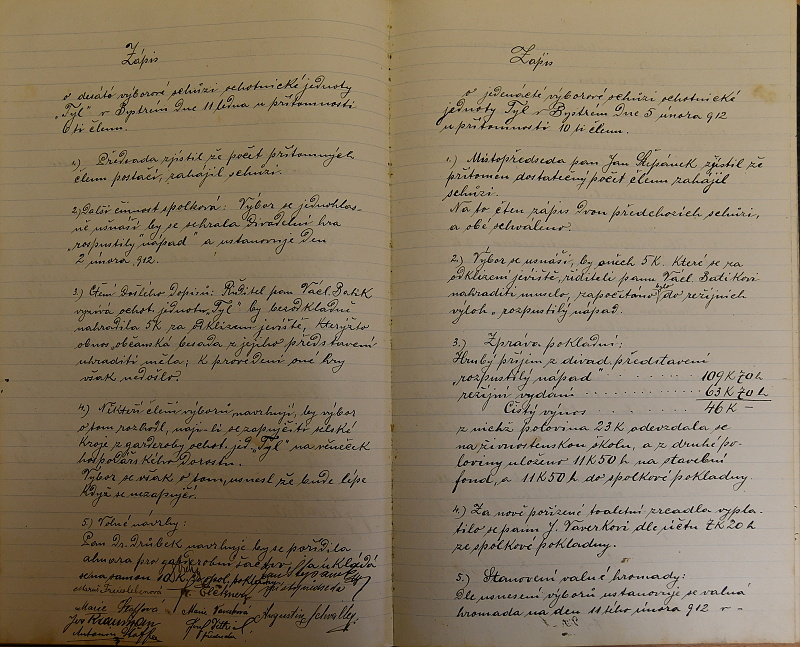 Zápis
o desáté výborové schůzi ochotnické jednoty
„Tyl" v Bystrém Dne 11 ledna u přítomnosti
6 ti členu.
1.) Předseda zjistil že počet přítomných
členu postačí, zahájil schůzi.
2.) Další činnost spolková: Výbor se jednohlas-
ně usnáší by se sehrála divadelní hra
„rozpustilý nápad" a ustanovuje den
2 února 912.
3.) Čtení Došlého Dopisu: Ředitel pan Václ. Batík
vyzívá ochot. jednotu „Tyl" by bezodkladně
nahradila 5K za sklizení jeviště, kterýžto
obnos, občanská beseda z jejího představení
uhraditi měla; k provedení oné hry
však nedošlo.
4.) Někteří členi výborů, navrhují, by výbor
o tom rozhodl, mají-li se zapůjčiti selské
kroje z garderoby ochot. jed. „Tyl" na věneček
hospodářského Dorostu.
Výbor se však o tom, usnesl že bude lépe
když se nezapůjčí.
5.) Volné návrhy:
Pan Dr. Drůbek navrhuje by se pořídila
almara pro garderobní
se na
Marie Štaffova
Augustin
Antonin Štaffa
Zápis
o jedenácté výborové schůzi ochotnické
jednoty Tyl v Bystrém Dne 5 února 912
u přítomnosti 10 ti členu.
1.) Místopředseda pan Jan Štěpánek zjistil že
přítomen dostatečný počet členu zahájil
schůzi.
Na to čten zápis dvou předchozích schůzí,
a obě schváleno.
2.) Výbor se usnáší, by oněch 5K. které se za
odklizení jeviště, řiditeli panu Václ. Batíkovi
nahraditi muselo, započítáno bylo do režijních
výloh „rozpustilý nápad.
3.) Zpráva pokladní:
Hrubý příjem z divad. představení
„rozpustilý nápad" . . . . . . . . 109 K 70 h
režijní vydání . . . . . . . . 63 K 70 h
Čistý výnos . . . . . . . . 46 K –
z nichž polovina 23 K odevzdala se
na živnostenskou školu, a z druhé po-
loviny uloženo 11 K 50 h na stavební
fond, a 11 K 50 h do spolkové pokladny.
4.) Za nově pořízené toaletní zrcadla vypla-
tilo se panu J. Vaverkovi dle účtu 7 K 20 h
ze spolkové pokladny.
5.) Stanovení valné hromady:
Dle usnesení výborů ustanovuje se valná
hromada na den 11 tého února 912 –